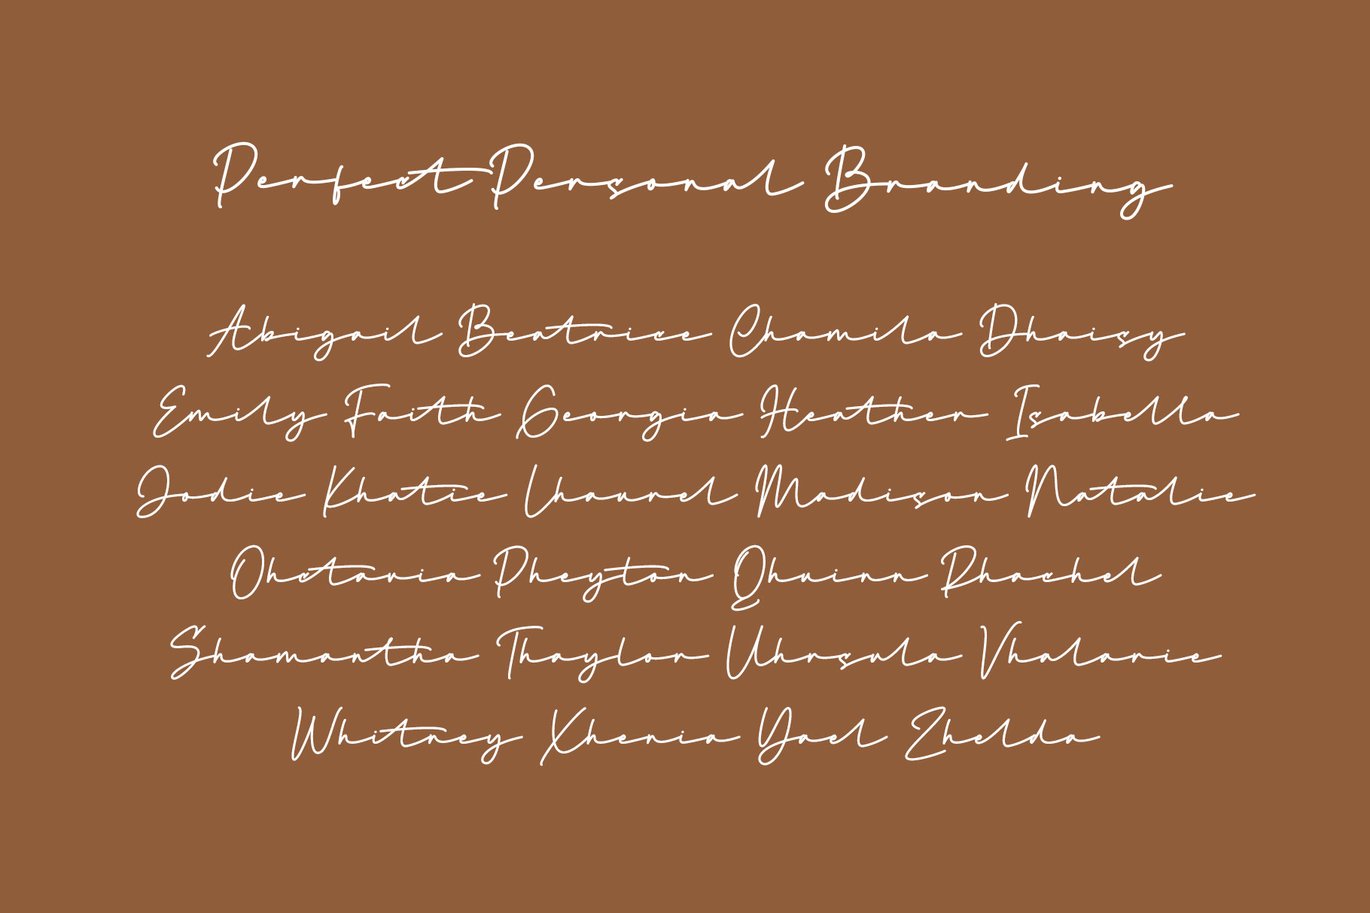 Perfect Personal Branding
Abigail Beatrice Chamila Dhaisy
Emily Faith Georgia Heather Isabella
Jodie Khatie Lhaurel Madison Natalie
Ohctavia Pheyton Qhuinn Rhachel
Shamantha Thaylor Uhrsula Vhalarie
Whitney Xhenia Yael Zhelda